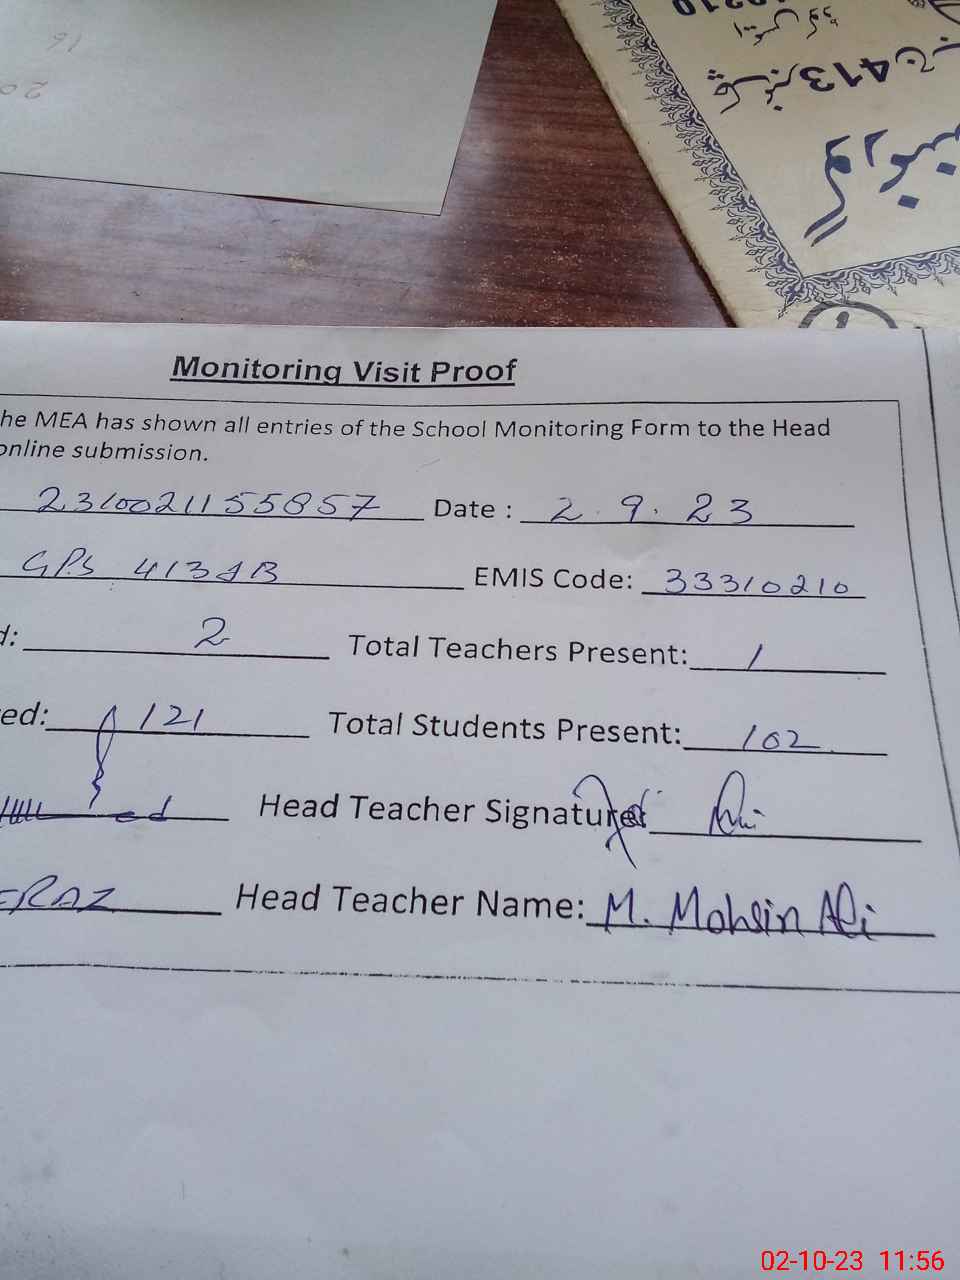 16
20
413
Monitoring Visit Proof
he MEA has shown all entries of the School Monitoring Form to the Head
online submission.
2310021155857 Date : 2.9.23
GPS 413 JB EMIS Code: 33310210
d: 2 Total Teachers Present: 1
ed: 121 Total Students Present: 102
Head Teacher Signature:
ERAZ Head Teacher Name: M. Mohsin Ali
02-10-23 11:56